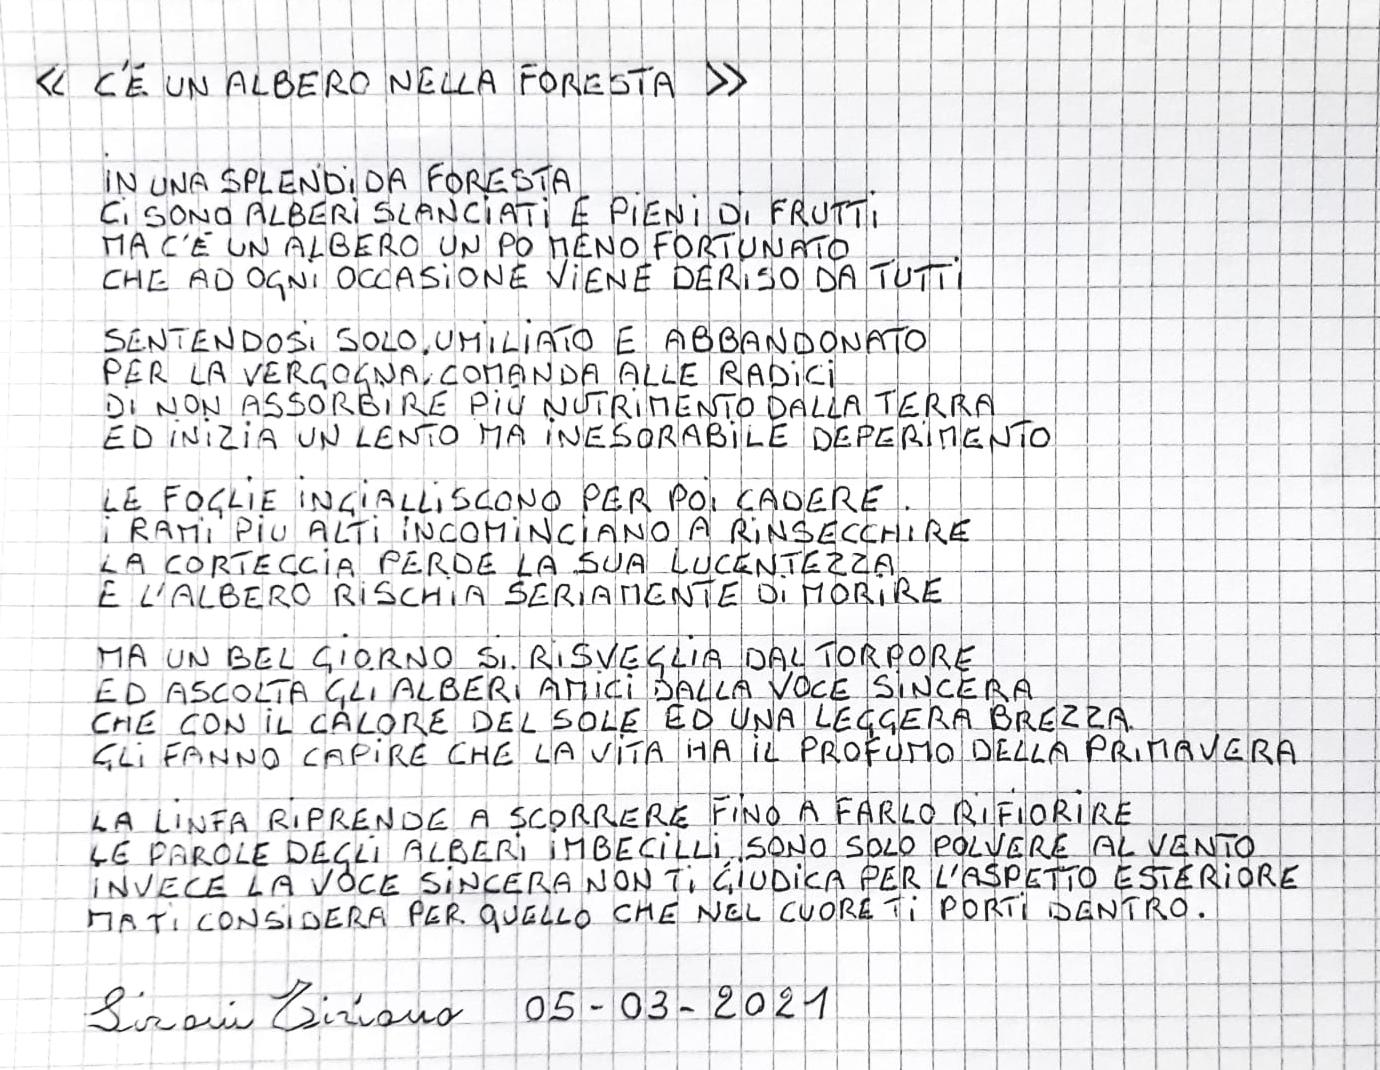 « C'È UN ALBERO NELLA FORESTA »
IN UNA SPLENDIDA FORESTA
CI SONO ALBERI SLANCIATI E PIENI DI FRUTTI
MA C'È UN ALBERO UN PO MENO FORTUNATO
CHE AD OGNI OCCASIONE VIENE DERISO DA TUTTI
SENTENDOSI SOLO, UMILIATO E ABBANDONATO
PER LA VERGOGNA, COMANDA ALLE RADICI
DI NON ASSORBIRE PIÙ NUTRIMENTO DALLA TERRA
ED INIZIA UN LENTO MA INESORABILE DEPERIMENTO
LE FOGLIE INGIALLISCONO PER POI CADERE
I RAMI PIU ALTI INCOMINCIANO A RINSECCHIRE
LA CORTECCIA PERDE LA SUA LUCENTEZZA
E L'ALBERO RISCHIA SERIAMENTE DI MORIRE
MA UN BEL GIORNO SI RISVEGLIA DAL TORPORE
ED ASCOLTA GLI ALBERI AMICI DALLA VOCE SINCERA
CHE CON IL CALORE DEL SOLE ED UNA LEGGERA BREZZA
GLI FANNO CAPIRE CHE LA VITA HA IL PROFUMO DELLA PRIMAVERA
LA LINFA RIPRENDE A SCORRERE FINO A FARLO RIFIORIRE
LE PAROLE DEGLI ALBERI IMBECILLI SONO SOLO POLVERE AL VENTO
INVECE LA VOCE SINCERA NON TI GIUDICA PER L'ASPETTO ESTERIORE
MA TI CONSIDERA PER QUELLO CHE NEL CUORE TI PORTI DENTRO.
Tiziano 05-03-2021